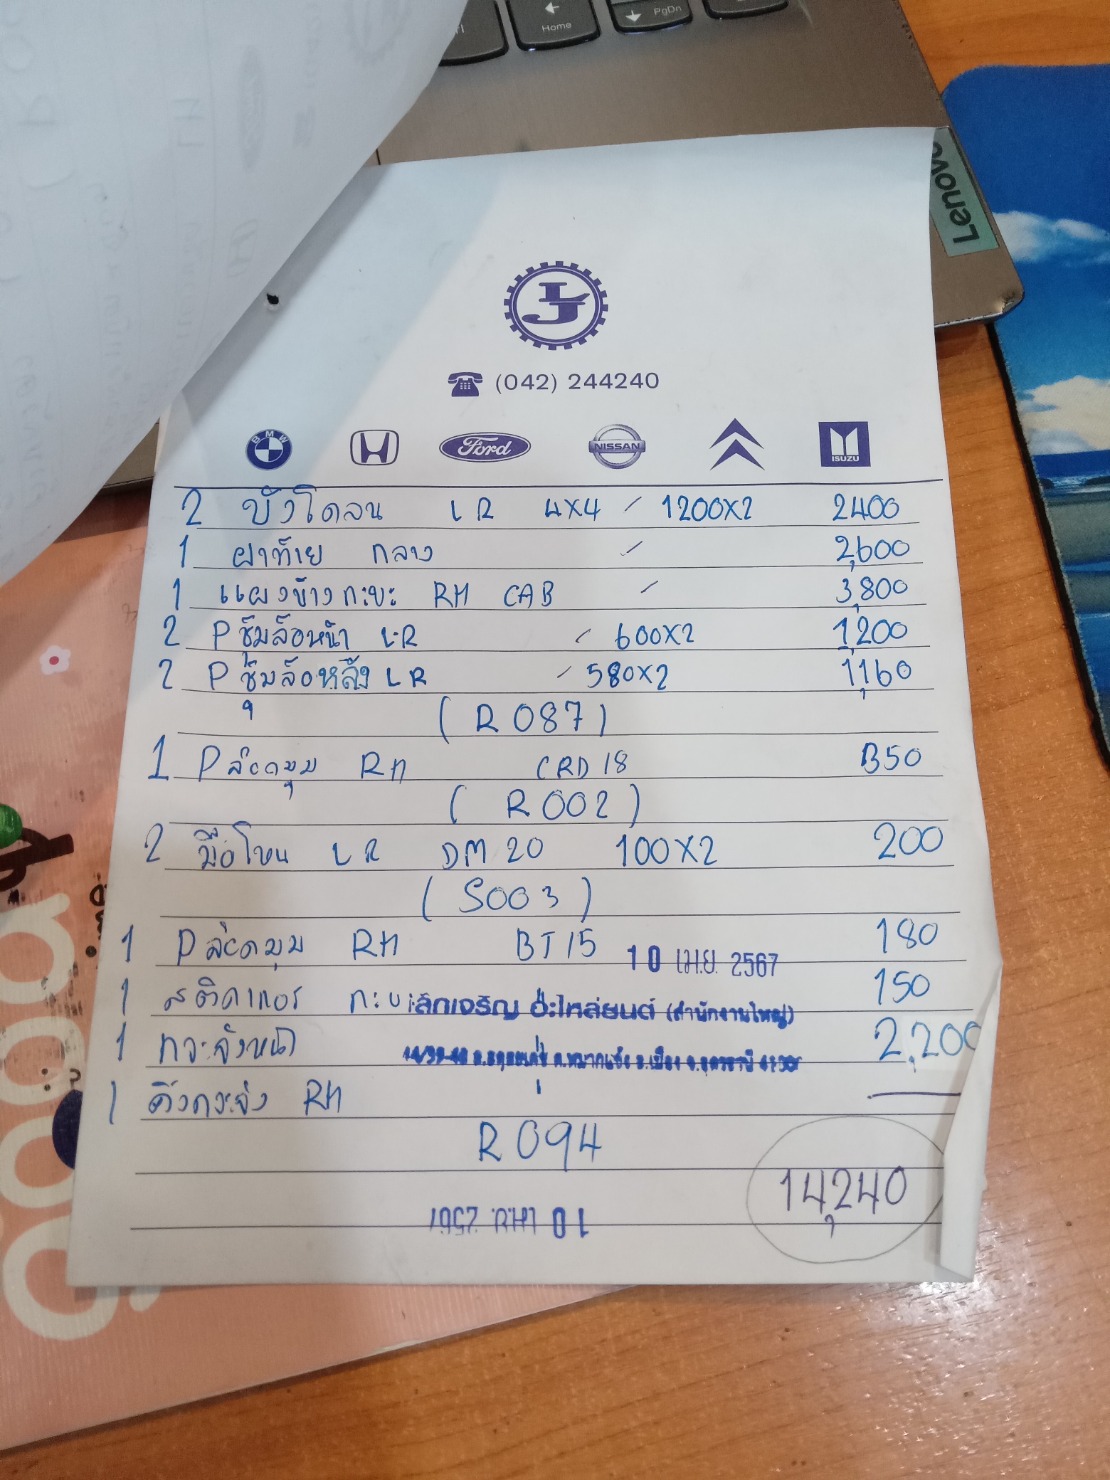 Home
PgDn
Lenovo
LJ
(042) 244240
BMW
Ford
NISSAN
ISUZU
2 บังโคลน LR 4X4 / 1200X2 2400
1 ฝาท้าย กลาง / 2,600
1 แผงข้างกะบะ RH CAB / 3,800
2 P ซุ้มล้อหน้า LR / 600X2 1,200
2 P ซุ้มล้อหลัง LR / 580X2 1,160
(R087)
1 P ล่างมุม RH CRD18 350
(R002)
2 มือโหน LR DM20 100X2 200
(S003)
1 P ล่างมุม RH BT15 180
10 เม.ย. 2567
1 สติคเกอร์ กะบะ 150
เลิกเจริญ อะไหล่ยนต์ (สำนักงานใหญ่)
1 กระจังหน้า 2,200
1 RH
R094
14,240
10 เม.ย. 2567